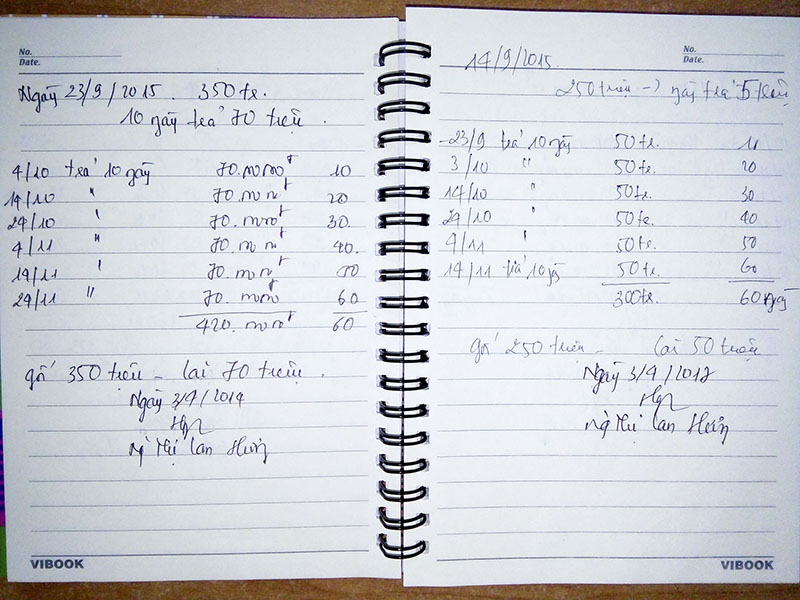 No.
Date.
Ngày 23/9/2015. 350tr.
10 ngày trả 70 triệu.
4/10 trả 10 ngày 70.000.000đ 10
14/10 " 70.000.000đ 20
24/10 " 70.000.000đ 30.
4/11 " 70.000.000đ 40.
14/11 " 70.000.000đ 50
24/11 " 70.000.000đ 60
420.000.000đ 60
gốc 350 triệu - lãi 70 triệu.
Ngày 3/4/2017
Thị Lan Hương
VIBOOK
No.
Date.
14/9/2015.
250 triệu -> ngày trả 5 triệu
-23/9 trả 10 ngày 50tr. 10
3/10 " 50tr. 20
14/10 " 50tr. 30
24/10 " 50tr. 40
4/11 " 50tr. 50
14/11 trả 10 ngày 50tr. 60
300tr. 60 ngày
gốc 250 triệu - lãi 50 triệu
Ngày 3/4/2017
Thị Lan Hương
VIBOOK